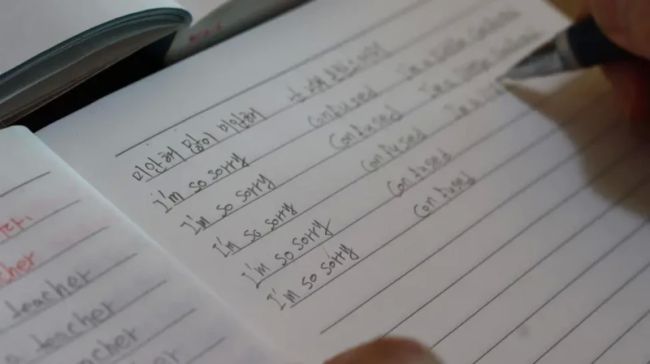 미안해 많이 미안해
I'm so sorry confused I'm a little confused
I'm so sorry confused I'm a little
I'm so sorry confused I'm a
I'm so sorry confused
I'm so sorry confused
cher
teacher
a teacher
teacher